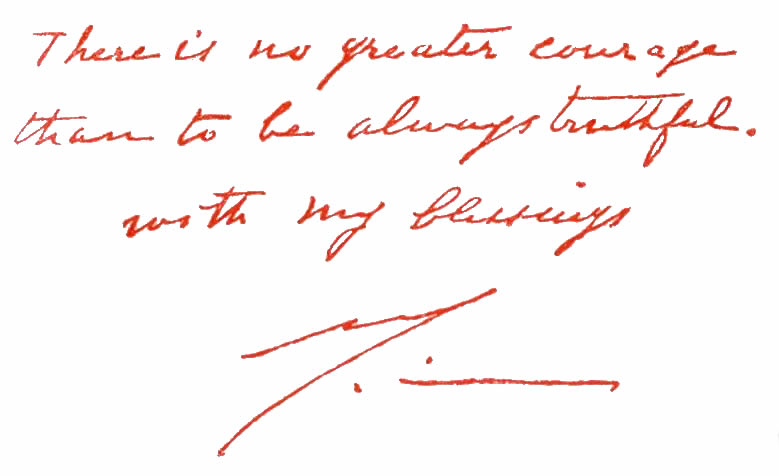 There is no greater courage
than to be always truthful.
with my blessings